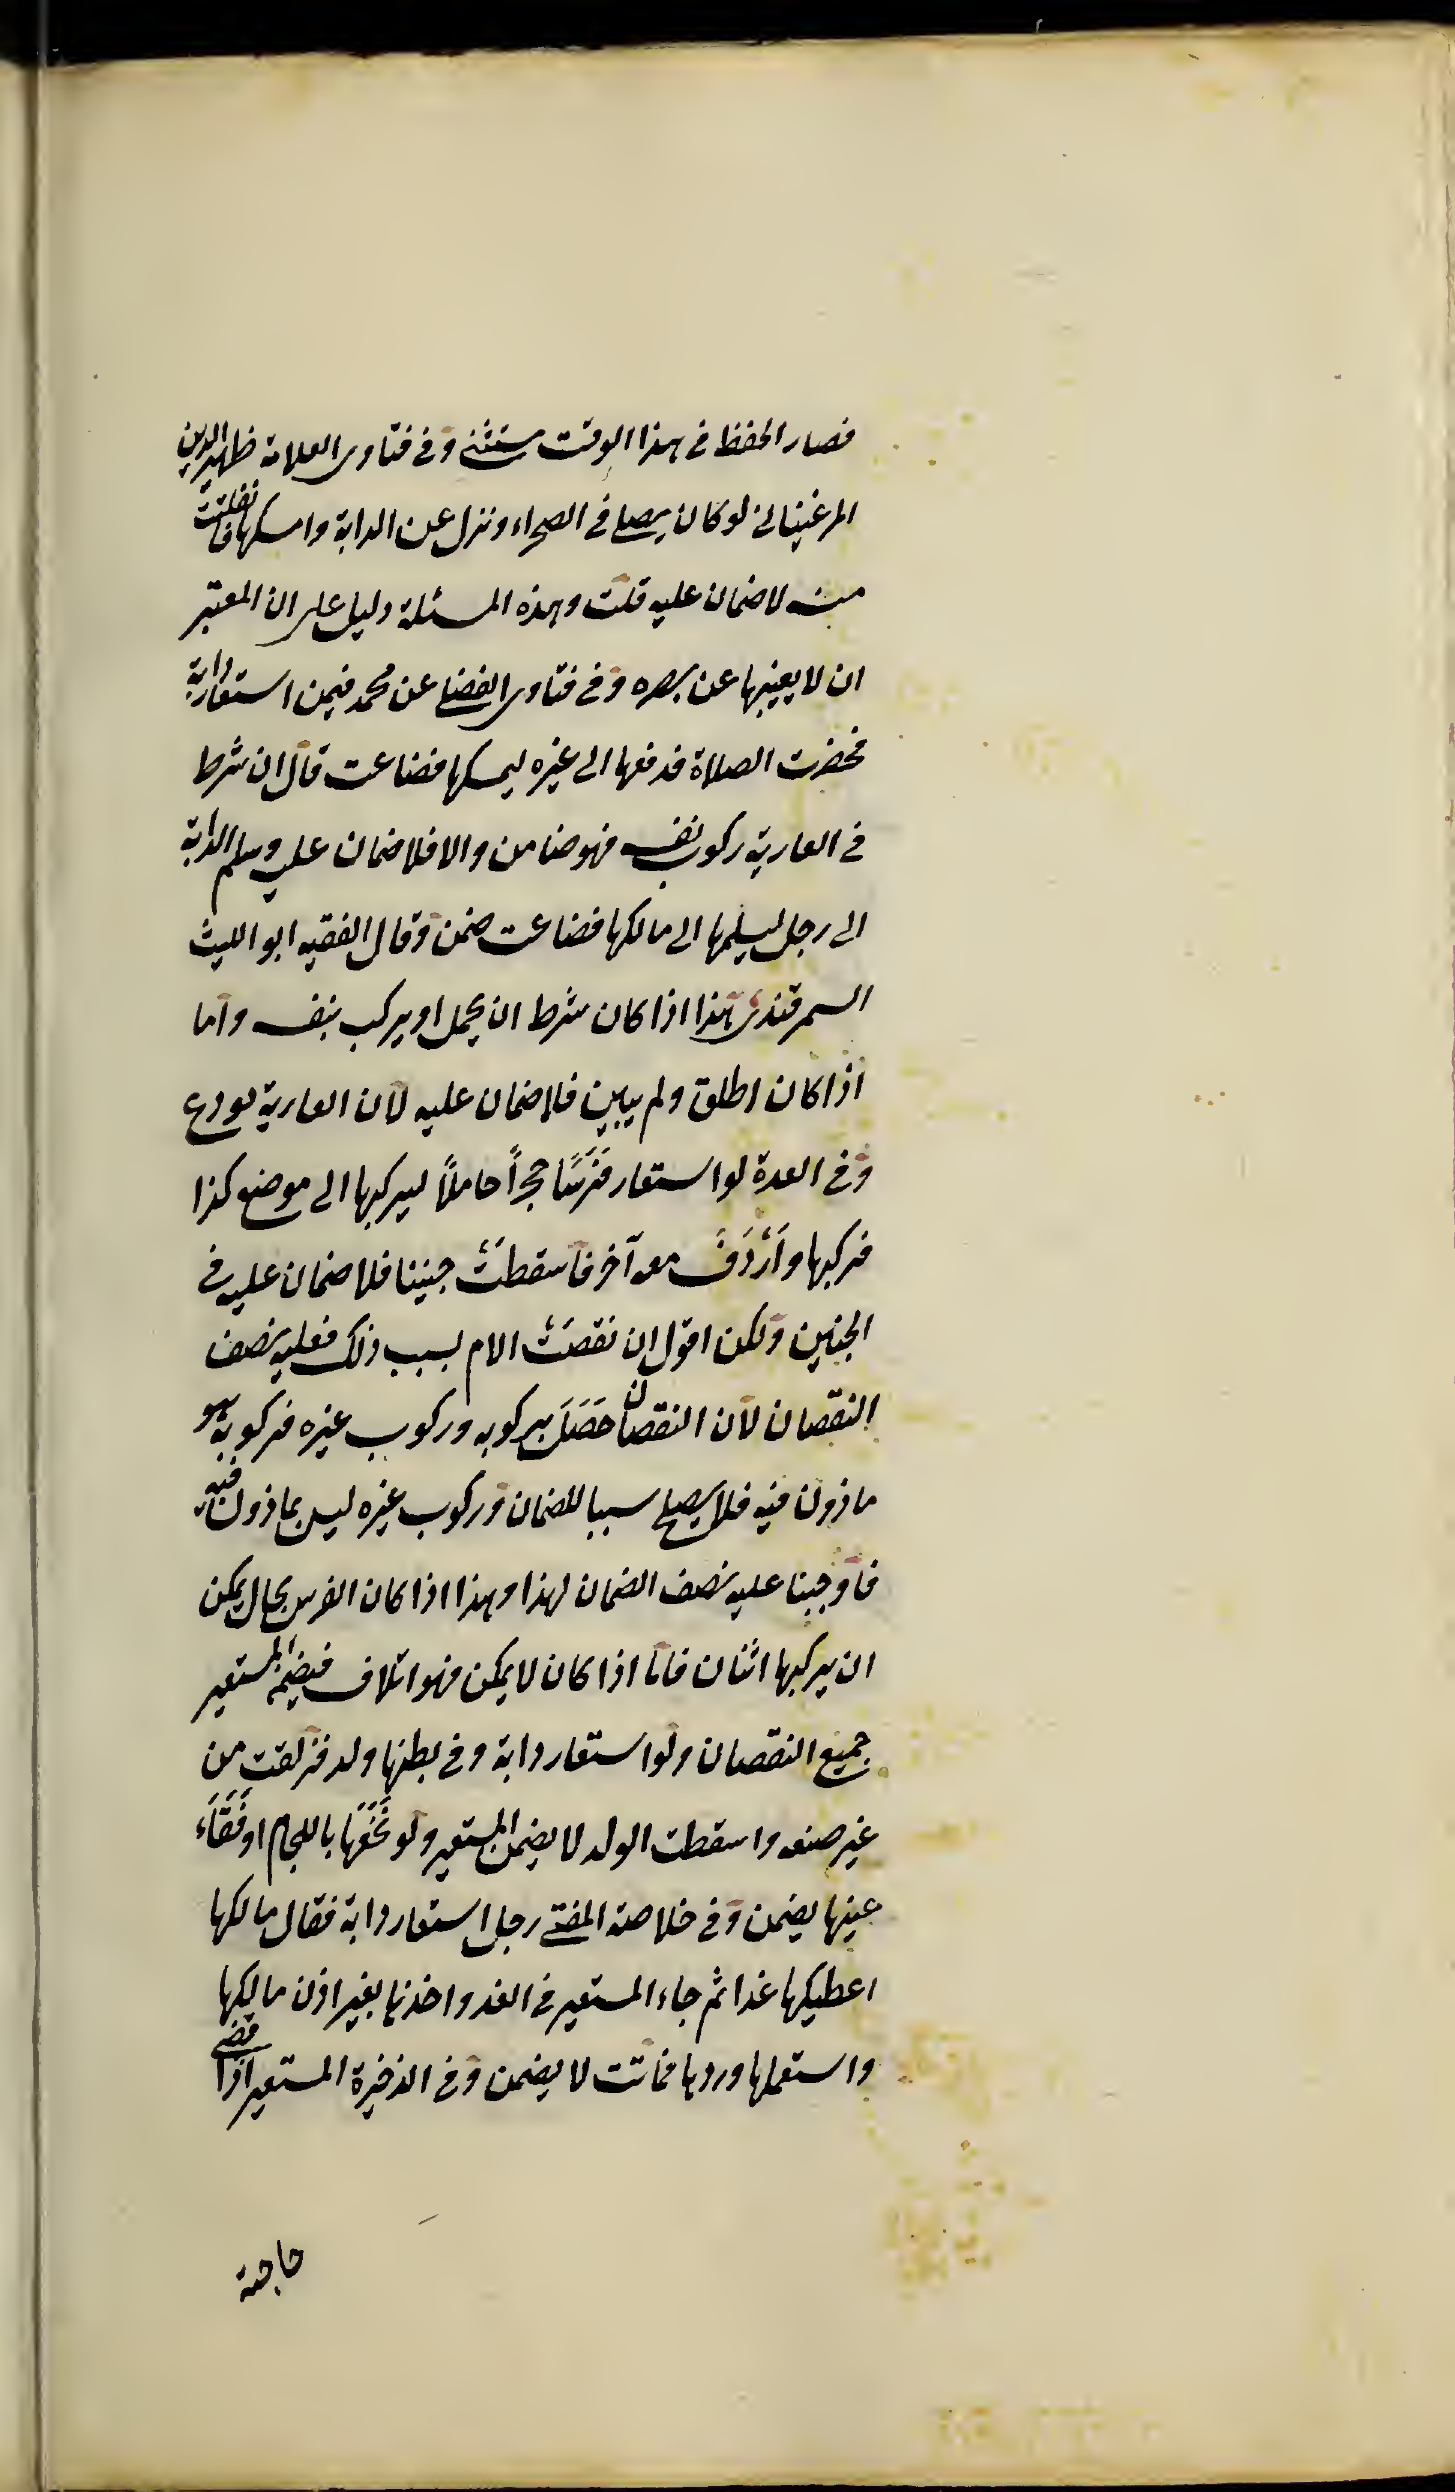 فصار الحفظ في هذا الوقت مستثنى وفي فتاوى العلامة ظهير الدين
المرغيناني لو كان يصلي في الصحراء ونزل عن الدابة وامسكها فانفلتت
منه لا ضمان عليه قلت وهذه المسئلة دليل على ان المعتبر
ان لا يغيبها عن بصره وفي فتاوى الفضلي عن محمد فيمن استعار دابة
فحضرت الصلاة فدفعها الى غيره ليمسكها فضاعت قال ان شرط
في العارية ركوب نفسه فهو ضامن والا فلا ضمان عليه وسلم الدابة
الى رجل ليسلمها الى مالكها فضاعت ضمن وقال الفقيه ابو الليث
السمرقندي هذا اذا كان شرط ان يحمل او يركب بنفسه واما
اذا كان اطلق ولم يبين فلا ضمان عليه لان العارية تودع
وفي العدة لو استعار فَرَسًا حجراً حاملاً ليركبها الى موضع كذا
فركبها واَرْدَفَ معه آخر فاسقطَتْ جنينا فلا ضمان عليه في
الجنين ولكن اقول ان نقصَتْ الام بسبب ذلك فعليه نصف
النقصان لان النقصان حَصَلَ بركوبه وركوب غيره فركوبه هو
ماذون فيه فلا يصلح سببا للضمان وركوب غيره ليس بماذون فيه
فاوجبنا عليه نصف الضمان لهذا وهذا اذا كان الفرس بحال يمكن
ان يركبها اثنان فاما اذا كان لا يمكن فهو اتلاف فيضمن المستعير
جميع النقصان ولو استعار دابة وفي بطنها ولد فزلقت من
غير صنعه واسقطت الولد لا يضمن المستعير ولو نَخَعَهَا باللجام او فَقَاَء
عينها يضمن وفي خلاصة المفتي رجل استعار دابة فقال مالكها
اعطيكها غدا ثم جاء المستعير في الغد واخذها بغير اذن مالكها
واستعملها وردها فماتت لا يضمن وفي الذخيرة المستعير اذا قضى
حاجته